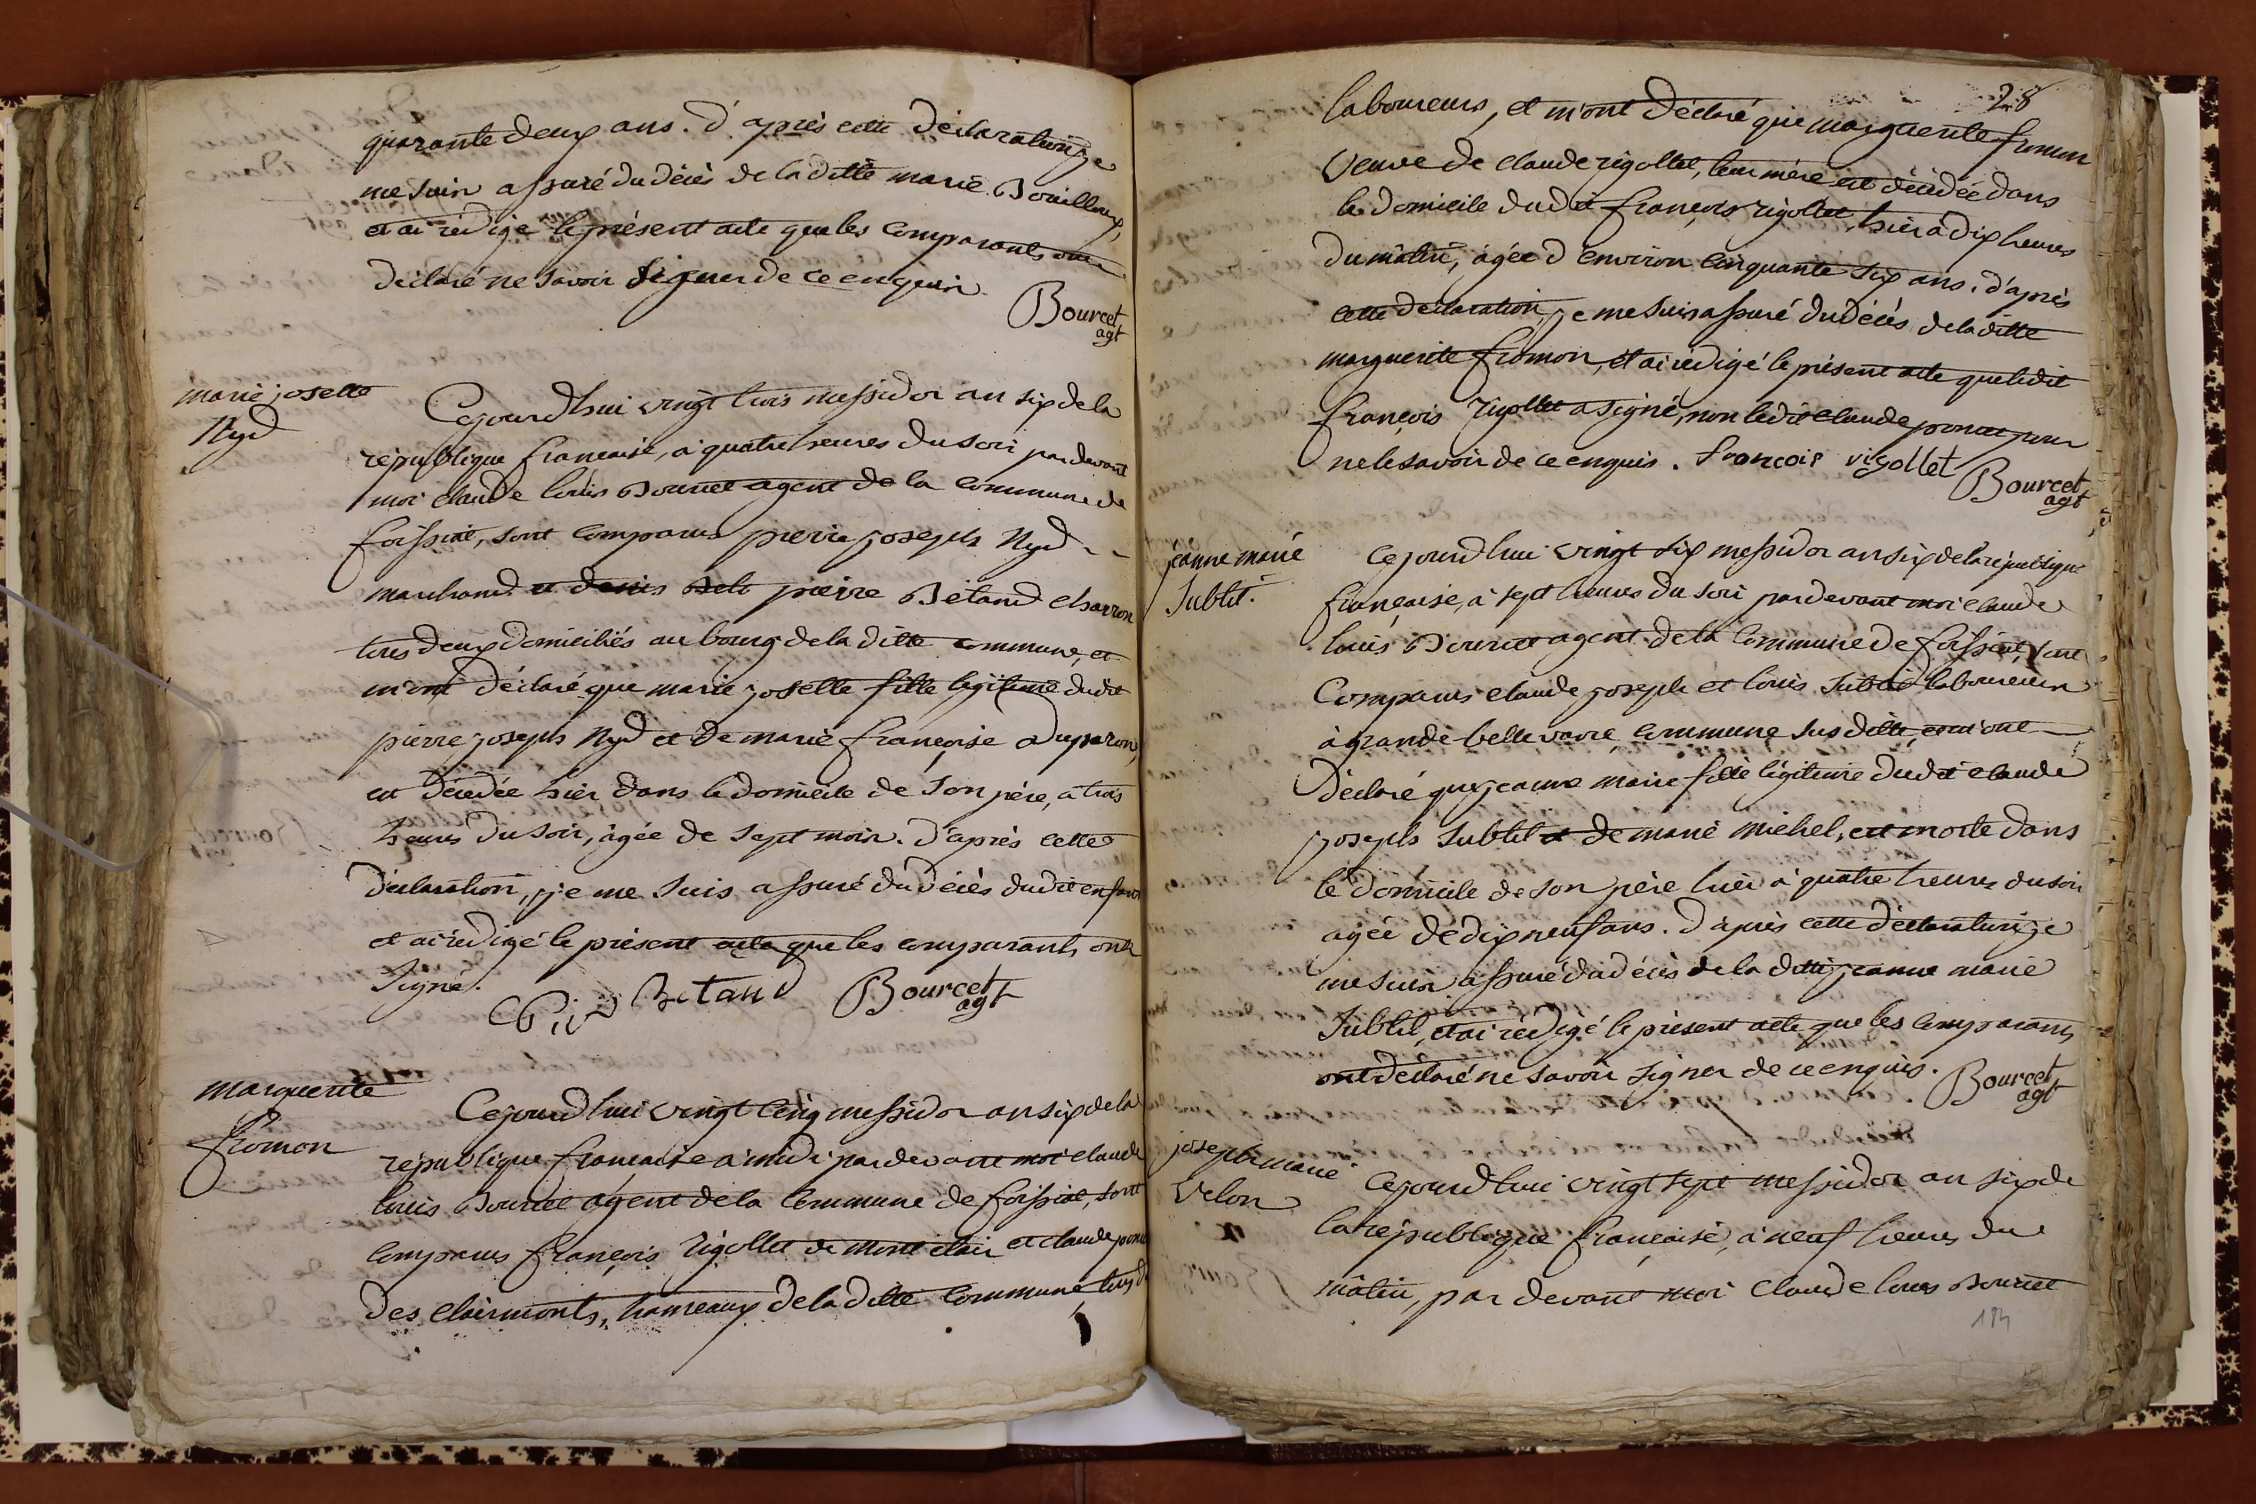 quarante deux ans. d'après cette déclaration, je
me suis assuré du décès de la ditte marie Bouilloux,
et ai rédigé le présent acte que les comparants ont
déclaré ne savoir signer de ce enquis.
Bourcet
agt
marie josette
Nyd
Cejourd'hui vingt trois messidor an six de la
république française, à quatre heures du soir pardevant
moi claude louis Bourcet agent de la commune de
foissiat, sont comparus pierre joseph Nyd
marchand et denis pierre Bétand charron
tous deux domiciliés au bourg de la ditte commune, et
m'ont déclaré que marie josette fille légitime dudit
pierre joseph Nyd et de marie françoise Duparon,
est décédée hier dans le domicile de son père, à trois
heures du soir, âgée de sept mois. d'après cette
déclaration, je me suis assuré du décès dudit enfant
et ai rédigé le présent acte que les comparants ont
signé.
Betand Bourcet
agt
marguerite
fromon
Cejourd'hui vingt cinq messidor an six de la
république française à midi pardevant moi claude
louis Bourcet agent de la commune de foissiat, sont
comparus françois rigollet de mont clair et claude poncet
des clairmonts, hameaux de la ditte commune, tous d
28
laboureurs, et m'ont déclaré que marguerite fromon
veuve de claude rigollet, leur mère est décédée dans
le domicile dudit françois rigollet, hier à dix heures
du matin, âgée d'environ cinquante six ans. d'après
cette déclaration, je me suis assuré du décès de la ditte
marguerite fromon, et ai rédigé le présent acte que ledit
françois rigollet a signé, non ledit claude poncet pour
ne le savoir de ce enquis. françois rigollet
Bourcet
agt
jeanne marie
Subtil.
Cejourd'hui vingt six messidor an six de la république
française, à sept heures du soir pardevant moi claude
louis Bourcet agent de la commune de foissiat, sont
comparus claude joseph et louis Subtil laboureurs
à grande bellevavre commune susditte, qui m'ont
déclaré que jeanne marie fille légitime dudit claude
joseph Subtil et de marie michel, est morte dans
le domicile de son père hier à quatre heures du soir
âgée de dix neuf ans. d'après cette déclaration, je
me suis assuré du décès de la ditte jeanne marie
Subtil, et ai rédigé le présent acte que les comparants
ont déclaré ne savoir signer de ce enquis.
Bourcet
agt
joseph marie
Velon
Cejourd'hui vingt sept messidor an six de
la république française, à neuf heures du
matin, par devant moi claude louis Bourcet
184